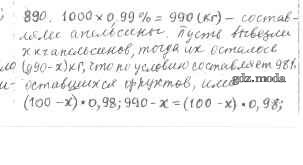 890. 1000 × 0,99 % = 990 (кг) – состав-
ляли апельсины. Пусть вывезли
x кг апельсинов, тогда их осталось
(990-x) кг, что по условию составляет 98%
оставшихся фруктов,
gdz.moda
(100 - x) • 0,98; 990 - x = (100 - x) • 0,98;